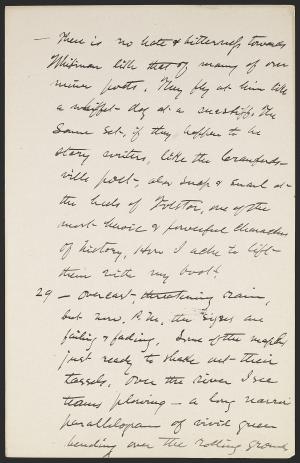 — There is no hate & bitterness towards
Whitman like that of many of our
minor poets. They fly at him like
a whiffet-dog at a mastiff. The
same set, if they happen to be
story writers, like the Crawfords-
ville poet, also snap & snarl at
the heels of Tolstoi, one of the
most heroic & powerful characters
of history. How I ache to lift
them with my boot!
29 — Overcast, threatening rain,
but now, P.M. the signs are
failing & fading. Some of the maples
just ready to shake out their
tassels. Over the river I see
teams plowing — a long narrow
parallelogram of vivid green
bending over the rolling ground